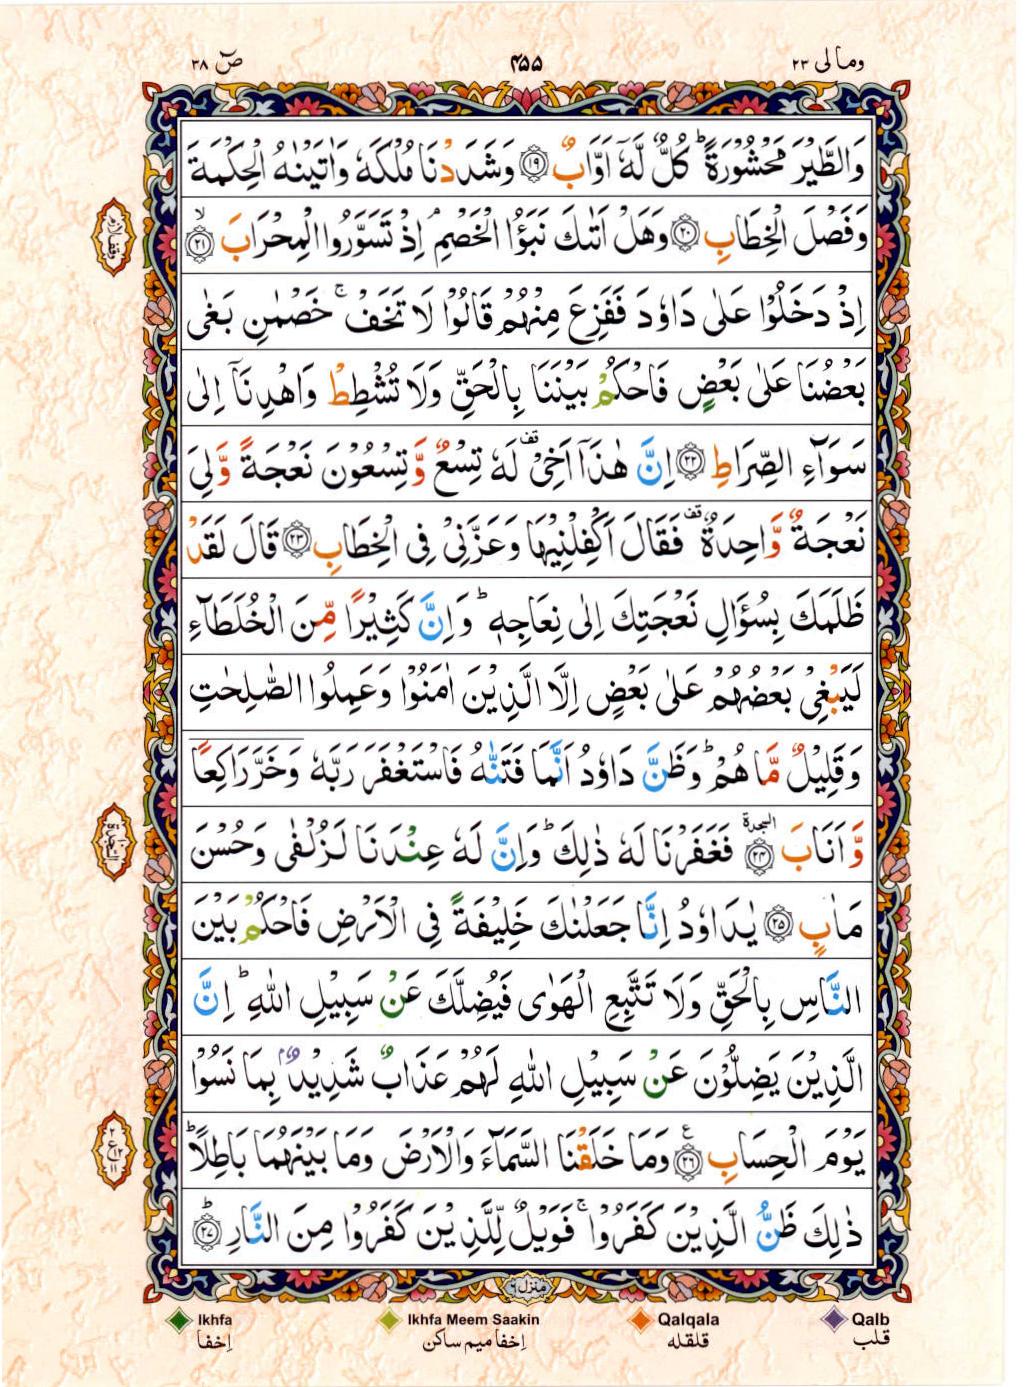 وما لی ۲۳
۴۵۵
صٓ ۳۸
وَالطَّيْرَ مَحْشُوْرَةً ؕ كُلٌّ لَّهٗۤ اَوَّابٌ ۝۱۹ وَشَدَدْنَا مُلْكَهٗ وَاٰتَيْنٰهُ الْحِكْمَةَ
وَفَصْلَ الْخِطَابِ ۝۲۰ وَهَلْ اَتٰىكَ نَبَؤُا الْخَصْمِ ۘ اِذْ تَسَوَّرُوا الْمِحْرَابَ ۝۲۱ ۙ
وقف لازم
اِذْ دَخَلُوْا عَلٰى دَاوٗدَ فَفَزِعَ مِنْهُمْ قَالُوْا لَا تَخَفْ ۚ خَصْمٰنِ بَغٰى
بَعْضُنَا عَلٰى بَعْضٍ فَاحْكُمْ بَيْنَنَا بِالْحَقِّ وَلَا تُشْطِطْ وَاهْدِنَاۤ اِلٰى
سَوَآءِ الصِّرَاطِ ۝۲۲ اِنَّ هٰذَاۤ اَخِيْ ۟ لَهٗ تِسْعٌ وَّتِسْعُوْنَ نَعْجَةً وَّلِيَ
نَعْجَةٌ وَّاحِدَةٌ ۟ فَقَالَ اَكْفِلْنِيْهَا وَعَزَّنِيْ فِي الْخِطَابِ ۝۲۳ قَالَ لَقَدْ
ظَلَمَكَ بِسُؤَالِ نَعْجَتِكَ اِلٰى نِعَاجِهٖ ؕ وَاِنَّ كَثِيْرًا مِّنَ الْخُلَطَآءِ
لَيَبْغِيْ بَعْضُهُمْ عَلٰى بَعْضٍ اِلَّا الَّذِيْنَ اٰمَنُوْا وَعَمِلُوا الصّٰلِحٰتِ
وَقَلِيْلٌ مَّا هُمْ ؕ وَظَنَّ دَاوٗدُ اَنَّمَا فَتَنّٰهُ فَاسْتَغْفَرَ رَبَّهٗ وَخَرَّ رَاكِعًا
وَّاَنَابَ ۝۲۴ السجدة فَغَفَرْنَا لَهٗ ذٰلِكَ ؕ وَاِنَّ لَهٗ عِنْدَنَا لَزُلْفٰى وَحُسْنَ
السجدة
مَاٰبٍ ۝۲۵ يٰدَاوٗدُ اِنَّا جَعَلْنٰكَ خَلِيْفَةً فِي الْاَرْضِ فَاحْكُمْ بَيْنَ
النَّاسِ بِالْحَقِّ وَلَا تَتَّبِعِ الْهَوٰى فَيُضِلَّكَ عَنْ سَبِيْلِ اللّٰهِ ؕ اِنَّ
الَّذِيْنَ يَضِلُّوْنَ عَنْ سَبِيْلِ اللّٰهِ لَهُمْ عَذَابٌ شَدِيْدٌۢ بِمَا نَسُوْا
يَوْمَ الْحِسَابِ ۝۲۶ ع وَمَا خَلَقْنَا السَّمَآءَ وَالْاَرْضَ وَمَا بَيْنَهُمَا بَاطِلًا ؕ
۲ ع ۱۲ ۱۱
ذٰلِكَ ظَنُّ الَّذِيْنَ كَفَرُوْا ۚ فَوَيْلٌ لِّلَّذِيْنَ كَفَرُوْا مِنَ النَّارِ ۝۲۷ ؕ
منزل ۶
Ikhfa
Ikhfa Meem Saakin
Qalqala
Qalb
اِخفا
اِخفا میم ساکن
قلقله
قلب